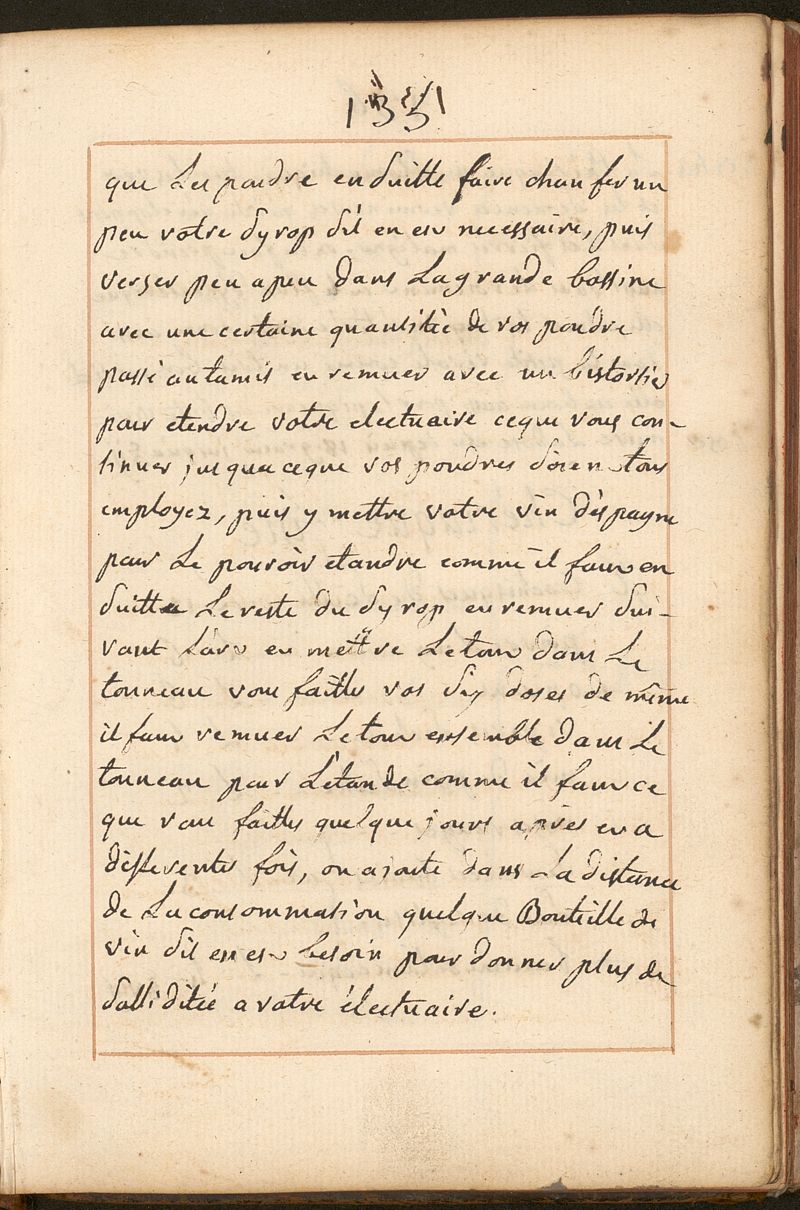 135
que Les poudre ensuitte faire chauffer un
peu votre syrop s'il en est necessaire, puis
verser peu a peu dans La grande bassine
avec une certaine quantitée de vos poudre
passé au tamis en remuer avec un bistortier
pour etendre votre electuaire ce que vous con-
tinuer jusqua ceque vos poudres soient tous
employez, puis y mettre votre vin d'espagne
pour Le pouvoir etandre comme il faut en
suitte Le reste du syrop en remuer sui-
vant L'art en mettre Le tout dans Le
tonneau vous faittes vos dix doses de même
il faut remuer Le tout enssemble dans Le
tonneau pour L'etande comme il faut ce
que vous faittes quelque jours apres en a
differentes fois, on ajoute dans La distance
de La consommation quelque Bouteille de
vin s'il en est besoin pour donner plus de
solliditée a votre électuaire.